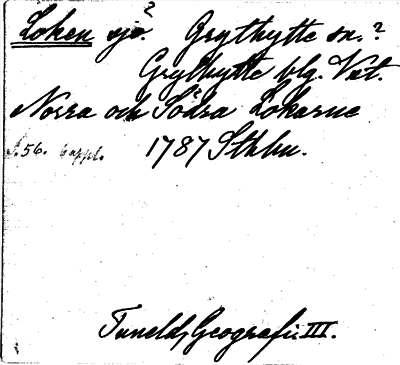 Loken sjö.? Grythytte sn.?
Grythytte blg. Vstm.
Norra och Södra Lokarne
s. 56. 6 uppl. 1787 Sthlm.
Tunelds Geografi III.